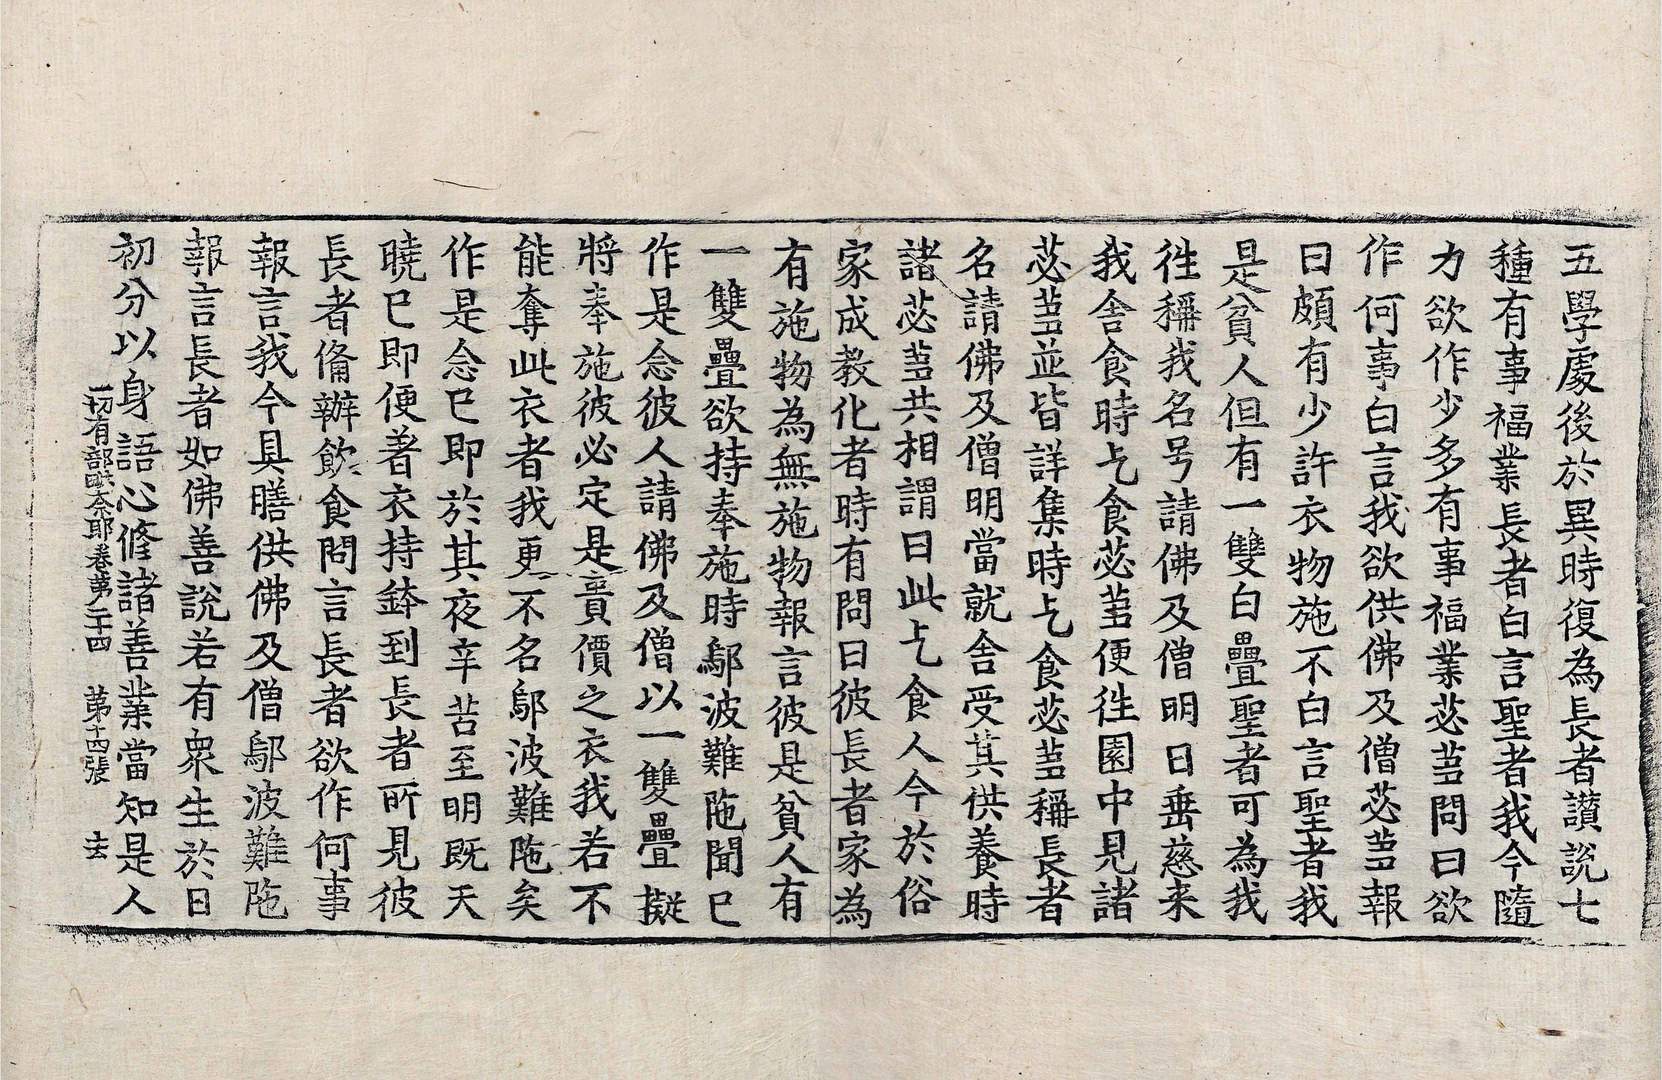 五學處後於異時復為長者讃說七
種有事福業長者白言聖者我今隨
力欲作少多有事福業苾蒭問曰欲
作何事白言我欲供佛及僧苾蒭報
曰頗有少許衣物施不白言聖者我
是貧人但有一雙白疊聖者可為我
徃稱我名号請佛及僧明日垂慈来
我舍食時乞食苾蒭便徃園中見諸
苾蒭並皆詳集時乞食苾蒭稱長者
名請佛及僧明當就舍受其供養時
諸苾蒭共相謂曰此乞食人今於俗
家成教化者時有問曰彼長者家為
有施物為無施物報言彼是貧人有
一雙疊欲持奉施時鄔波難陁聞已
作是念彼人請佛及僧以一雙疊擬
將奉施彼必定是貴價之衣我若不
能奪此衣者我更不名鄔波難陁矣
作是念已即於其夜辛苦至明既天
曉已即便著衣持鉢到長者所見彼
長者俻辦飲食問言長者欲作何事
報言我今具膳供佛及僧鄔波難陁
報言長者如佛善說若有衆生於日
初分以身語心修諸善業當知是人
一切有部毗奈耶卷第二十四 第十四張 去